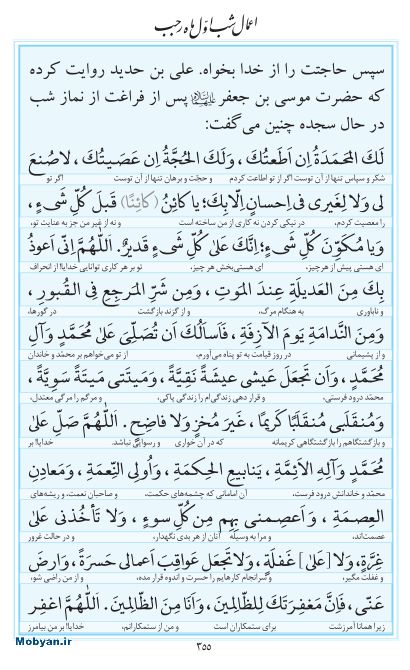 اعمال شب اوّل ماه رجب
سپس حاجتت را از خدا بخواه. علی بن حدید روایت کرده
که حضرت موسی بن جعفر علیه‌السلام پس از فراغت از نماز شب
در حال سجده چنین می‌گفت:
لَكَ الْمَحْمَدَةُ اِنْ اَطَعْتُكَ، وَلَكَ الْحُجَّةُ اِنْ عَصَيْتُكَ، لاصُنْعَ
شکر و سپاس تنها از آن توست اگر از تو اطاعت کردم و حجّت و برهان تنها از آن توست اگر تو
لی وَلا لِغَيْری فی اِحسانٍ اِلّابِكَ؛ يا كائِنُ (كائِنًا) قَبْلَ كُلِّ شَیءٍ،
را معصیت کردم، در نیکی کردن نه کاری از من ساخته است و نه از غیر من جز به عنایت تو،
وَيا مُكَوِّنَ كُلِّ شَیءٍ؛ اِنَّكَ عَلىٰ كُلِّ شَیءٍ قَديرٌ. اَللّٰهُمَّ اِنّی اَعوذُ
ای هستی پیش از هر چیز، ای هستی‌بخش هر چیز، تو بر هر کاری توانایی خدایا! از انحراف
بِكَ مِنَ الْعَديلَةِ عِنْدَ الْمَوْتِ، وَمِنْ شَرِّ الْمَرْجِعِ فِی الْقُبورِ،
و ناباوری به هنگام مرگ، و از گزند بازگشت در گورها،
وَمِنَ النَّدامَةِ يَوْمَ الْآزِفَةِ، فَاَسْاَلُكَ اَنْ تُصَلِّیَ عَلىٰ مُحَمَّدٍ وَآلِ
و از پشیمانی در روز قیامت به تو پناه می‌آورم، از تو می‌خواهم بر محمّد و خاندان
مُحَمَّدٍ، وَاَنْ تَجْعَلَ عَيْشی عيشَةً نَقِيَّةً، وَميتَتی ميتَةً سَوِيَّةً،
محمّد درود فرستی، و قرار دهی زندگی‌ام را زندگی پاکی، و مرگم را مرگی معتدل،
وَمُنْقَلَبی مُنْقَلَبًا كَريمًا، غَيْرَ مُخْزٍ وَلا فاضِحٍ. اَللّٰهُمَّ صَلِّ عَلىٰ
و بازگشتگاهم را بازگشتگاهی کریمانه که در آن خواری و رسوایی نباشد. خدایا! بر
مُحَمَّدٍ وَآلِهِ الْاَئِمَّةِ، يَنابيعِ الْحِكْمَةِ، وَاُولِی النِّعْمَةِ، وَمَعادِنِ
محمّد و خاندانش درود فرست، آن امامانی که چشمه‌های حکمت، و صاحبان نعمت، و ریشه‌های
الْعِصْمَةِ، وَاعْصِمْنی بِهِمْ مِنْ كُلِّ سوءٍ، وَلا تَأْخُذْنی عَلىٰ
عصمت‌اند، و مرا به وسیلۀ آنان از هر بدی نگهدار، و در حالت غرور
غِرَّةٍ، وَلا [عَلىٰ] غَفْلَةٍ، وَلا تَجْعَلْ عَواقِبَ اَعمالی حَسْرَةً، وَارْضَ
و غفلت مگیر، و سرانجام کارهایم را حسرت و اندوه قرار مده، و از من راضی شو،
عَنّی، فَاِنَّ مَغْفِرَتَكَ لِلظّالِمينَ، وَاَنَا مِنَ الظّالِمينَ. اَللّٰهُمَّ اغْفِرْ
زیرا همانا آمرزشت برای ستمکاران است و من از ستمکارانم، خدایا! بر من بیامرز
۳۵۵
Mobyan.ir